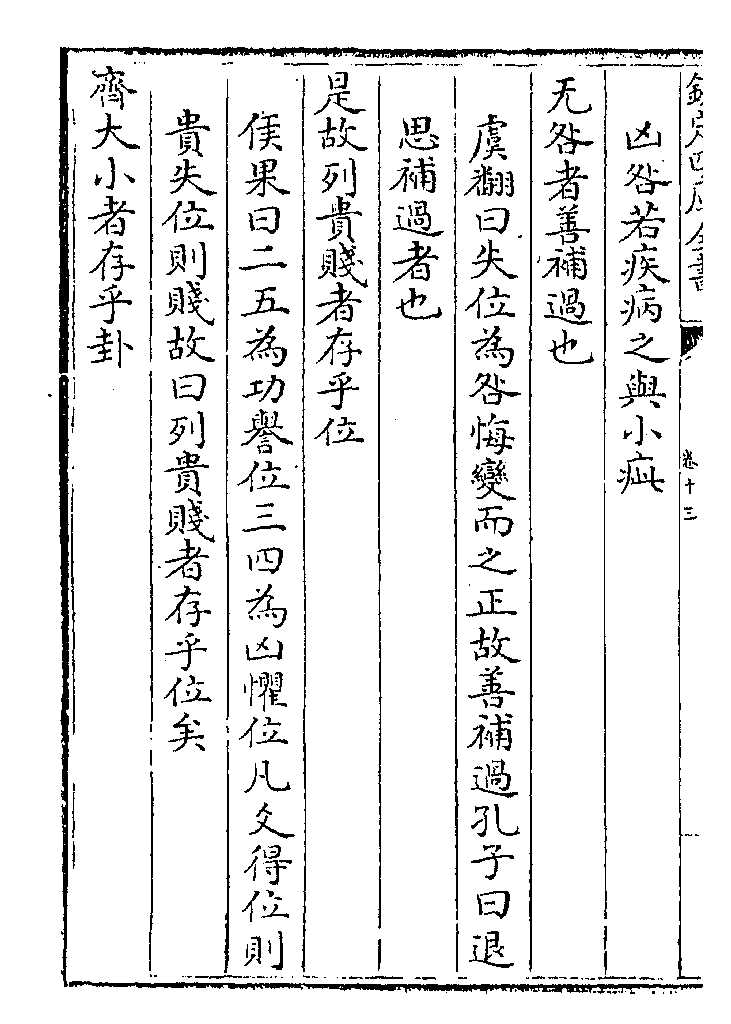 欽定四庫全書
卷十三
凶咎若疾病之與小疵
无咎者善補過也
虞翻曰失位為咎悔變而之正故善補過孔子曰退
思補過者也
是故列貴賤者存乎位
侯果曰二五為功譽位三四為凶懼位凡爻得位則
貴失位則賤故曰列貴賤者存乎位矣
齊大小者存乎卦